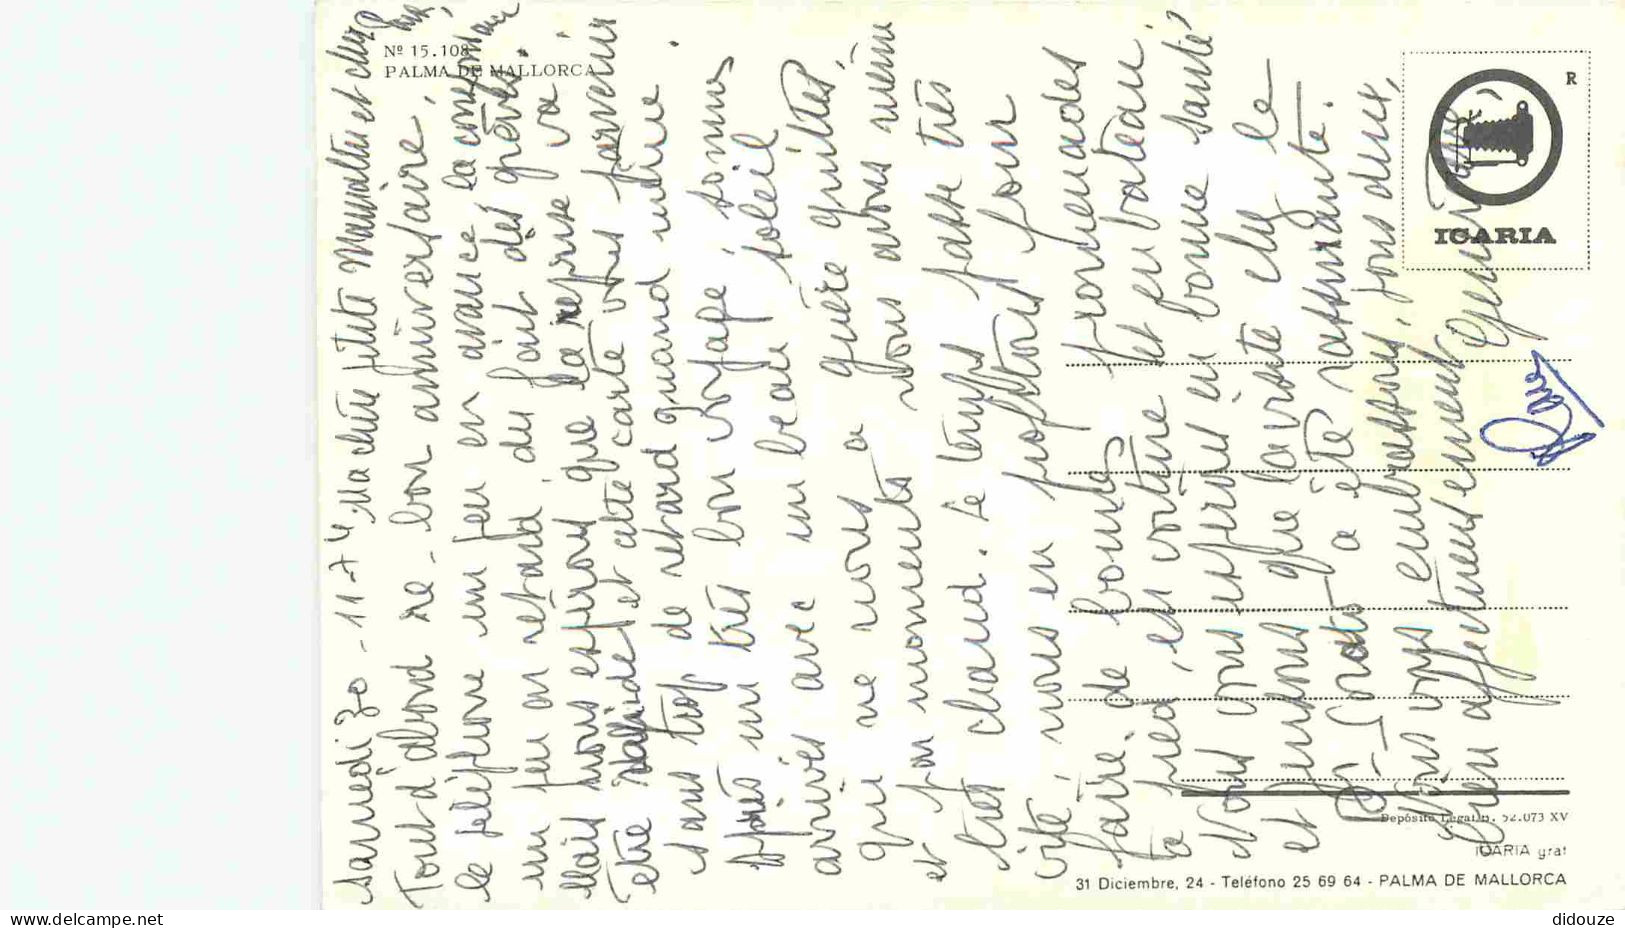 Nº 15.108
PALMA DE MALLORCA
Samedi 30-11-74 Ma chère petite et cher
Tout d'abord re-bon anniversaire,
le téléphone un peu en avance, la
un peu en retard, du fait des grèves.
Mais nous espérons que la reprise va
être rapide et cette carte vous parvenir
sans trop de retard quand même.
Après un très bon voyage, somme
arrivés avec un beau soleil
qui ne nous a guère quittés,
et par moments nous avons même
très chaud. Le temps passe très
vite, nous en profitons pour
faire de bonnes promenades
à pied, en voiture et en bateau
Nous vous espérons en bonne santé
et pensons que la visite chez le
a été rassurante.
Nous vous embrassons, tous deux,
bien affectueusement
ICARIA
R
Depósito Legal B. 52.073 XV
ICARIA graf
31 Diciembre, 24 - Teléfono 25 69 64 - PALMA DE MALLORCA
delcampe.net
didouze